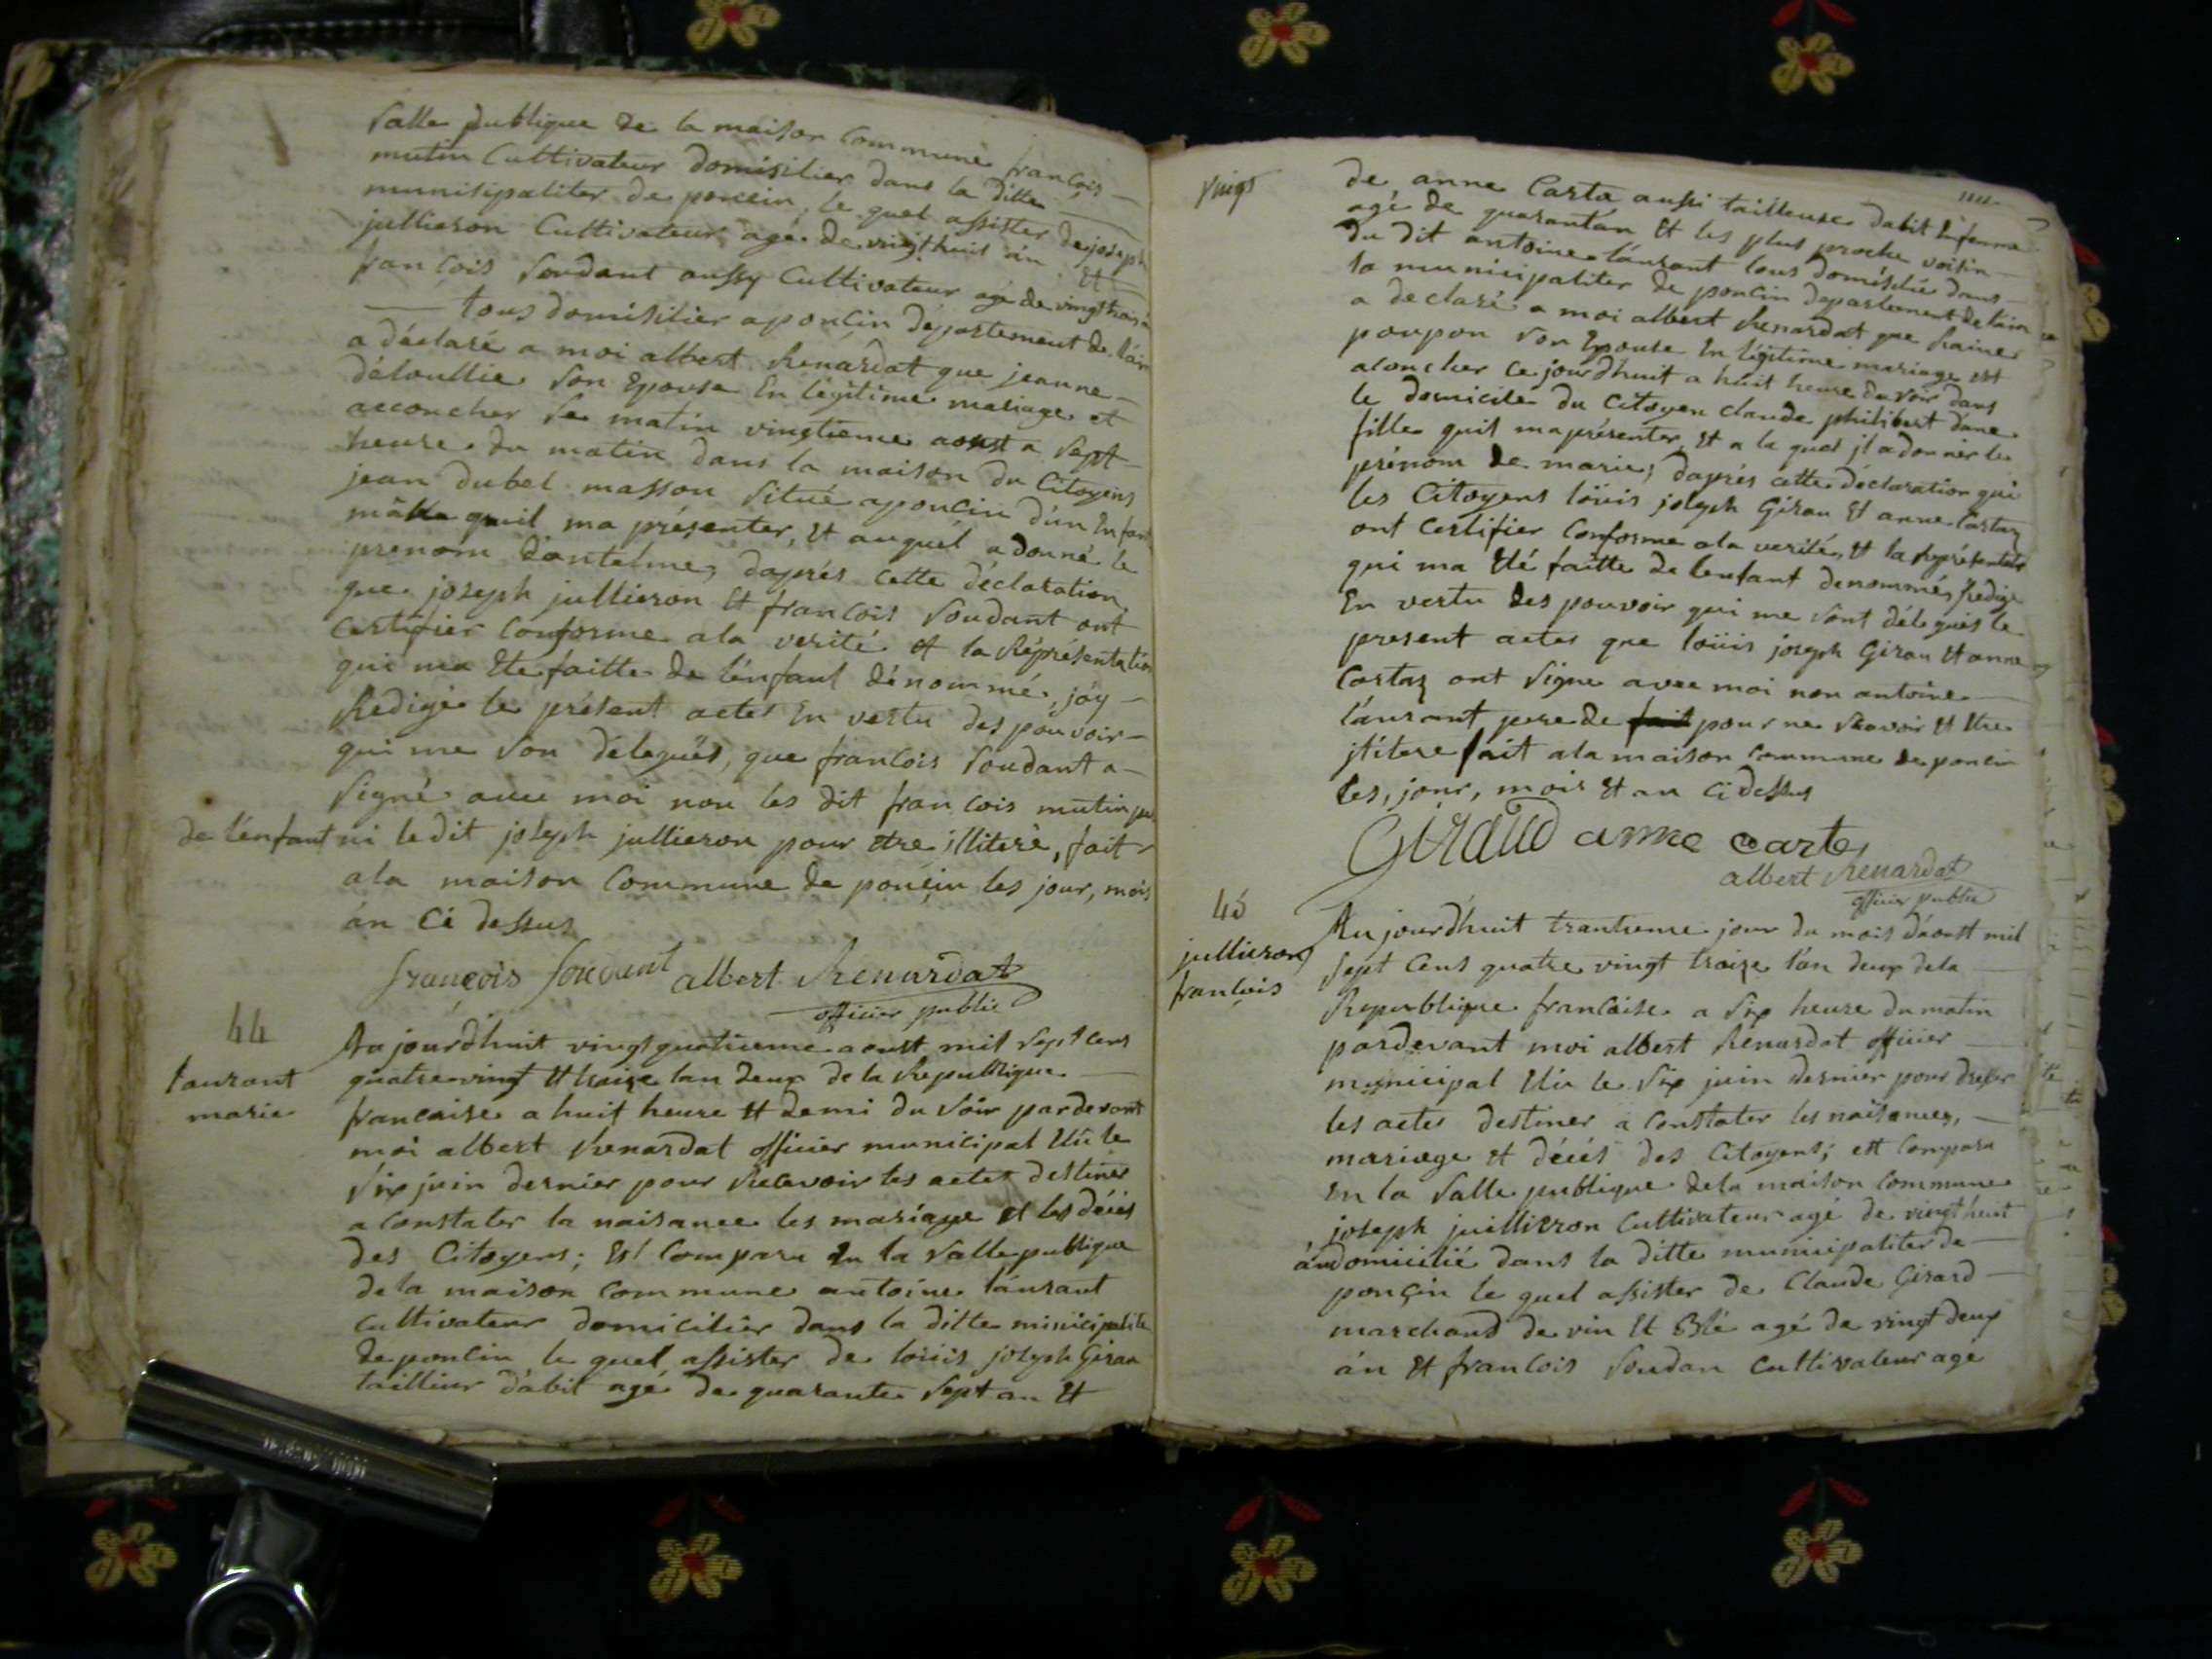 salle publique de la maison Commune françois
mutin Cultivateur domisilier dans la ditte
munisipaliter de poncin, le quel assister de joseph
jullieron Cultivateur agé de vingt huit án Et
francois soudant aussy Cultivateur agé de vingt trois
tous domisilier a poncin département de láin
a déclaré a moi albert Renardat que jeanne
déloullie son Epouse En légitime mariage et
accoucher se matin vingtieme aoust a sept
heure du matin dans la maison du Citoyens
jean dubel masson situé a poncin d'un Enfant
mâlle quil ma présenter, Et auquel a donné le
prenom d'antelme, daprés cette déclaration
que joseph jullieron Et francois soudant ont
Certifier Conforme ala verité et la Réprésentation
qui ma Ete faitte de l'énfant dénommé, jáy
Redigé le présent actes En vertu des pouvoir
qui me son délegués, que francois soudant a
signé avec moi non les dit francois mutin per
de l'énfant ni le dit joseph jullieron pour Etre illiteré, fait
ala maison Commune de poncin les jour, mois
án Ci dessus
françois soudant albert Renardat
officier public
44
laurant
marie
Aujourdhuit vingt quatrieme aoust mil sept cens
quatrevingt Et traize lan deux de la Republique
francaise a huit heure Et demi du soir pardevant
moi albert Renardat officier municipal Elû le
six juin dernier pour Recevoir les actes destiner
a Constater la naisance les mariage et les décés
des Citoyens; Est Comparu En la salle publique
dela maison Commune antoine láurant
Cultivateur domicilier dans la ditte municipalite
de poncin le quel assister de loüis joseph Girau
tailliur dábit agé de quarante sept an Et
vingt
de anne Carta aussi tailleuse dabit
agé de quarantán Et les plus proche voisin
du dit antoine láurant tous domisilié dans
la municipaliter de poncin departement de láin
a declaré a moi albert Renardat que
poupon son Epouse En légitime mariage est
acoucher ce jourdhuit a huit heure du soir dans
le domicile du Citoyen claude philibert dúne
fille quil ma présenter, Et a la quel jl a donner le
prénom de marie; daprés cette déclaration que
les Citoyens loüis joseph Girau Et anne Cartaz
ont Certifier Conforme ala verité, Et la Représentation
qui ma Eté faitte de lenfant denommé, Redigé
En vertu des pouvoir qui me sont délegués le
present actes que loüis joseph Girau Et anne
Cartaz ont signe avec moi non antoine
láurant, pere de fait pour ne scavoir Et Etre
jlitere fait ala maison Commune de poncin
les, jour, mois Et an Ci dessus
Giraud anne carta
albert Renardat
officier public
45
jullieron
francois
Aujourdhuit trantieme jour du mois dáoust mil
sept Cens quatre vingt traize lán deux dela
Republique francaise a six heure du matin
pardevant moi albert Renardat officier
municipal Elû le six juin dernier pour dresser
les actes destiner a Constater les naisances,
mariage et décés des Citoyens; est Comparu
En la salle publique dela maison Commune
joseph juillieron Cultivateur agé de vingt huit
án domicilié dans la ditte municipaliter de
ponçin le quel assister de Claude Girard
marchand de vin Et Blé agé de vingt deux
án Et francois soudan Cultivateur agé